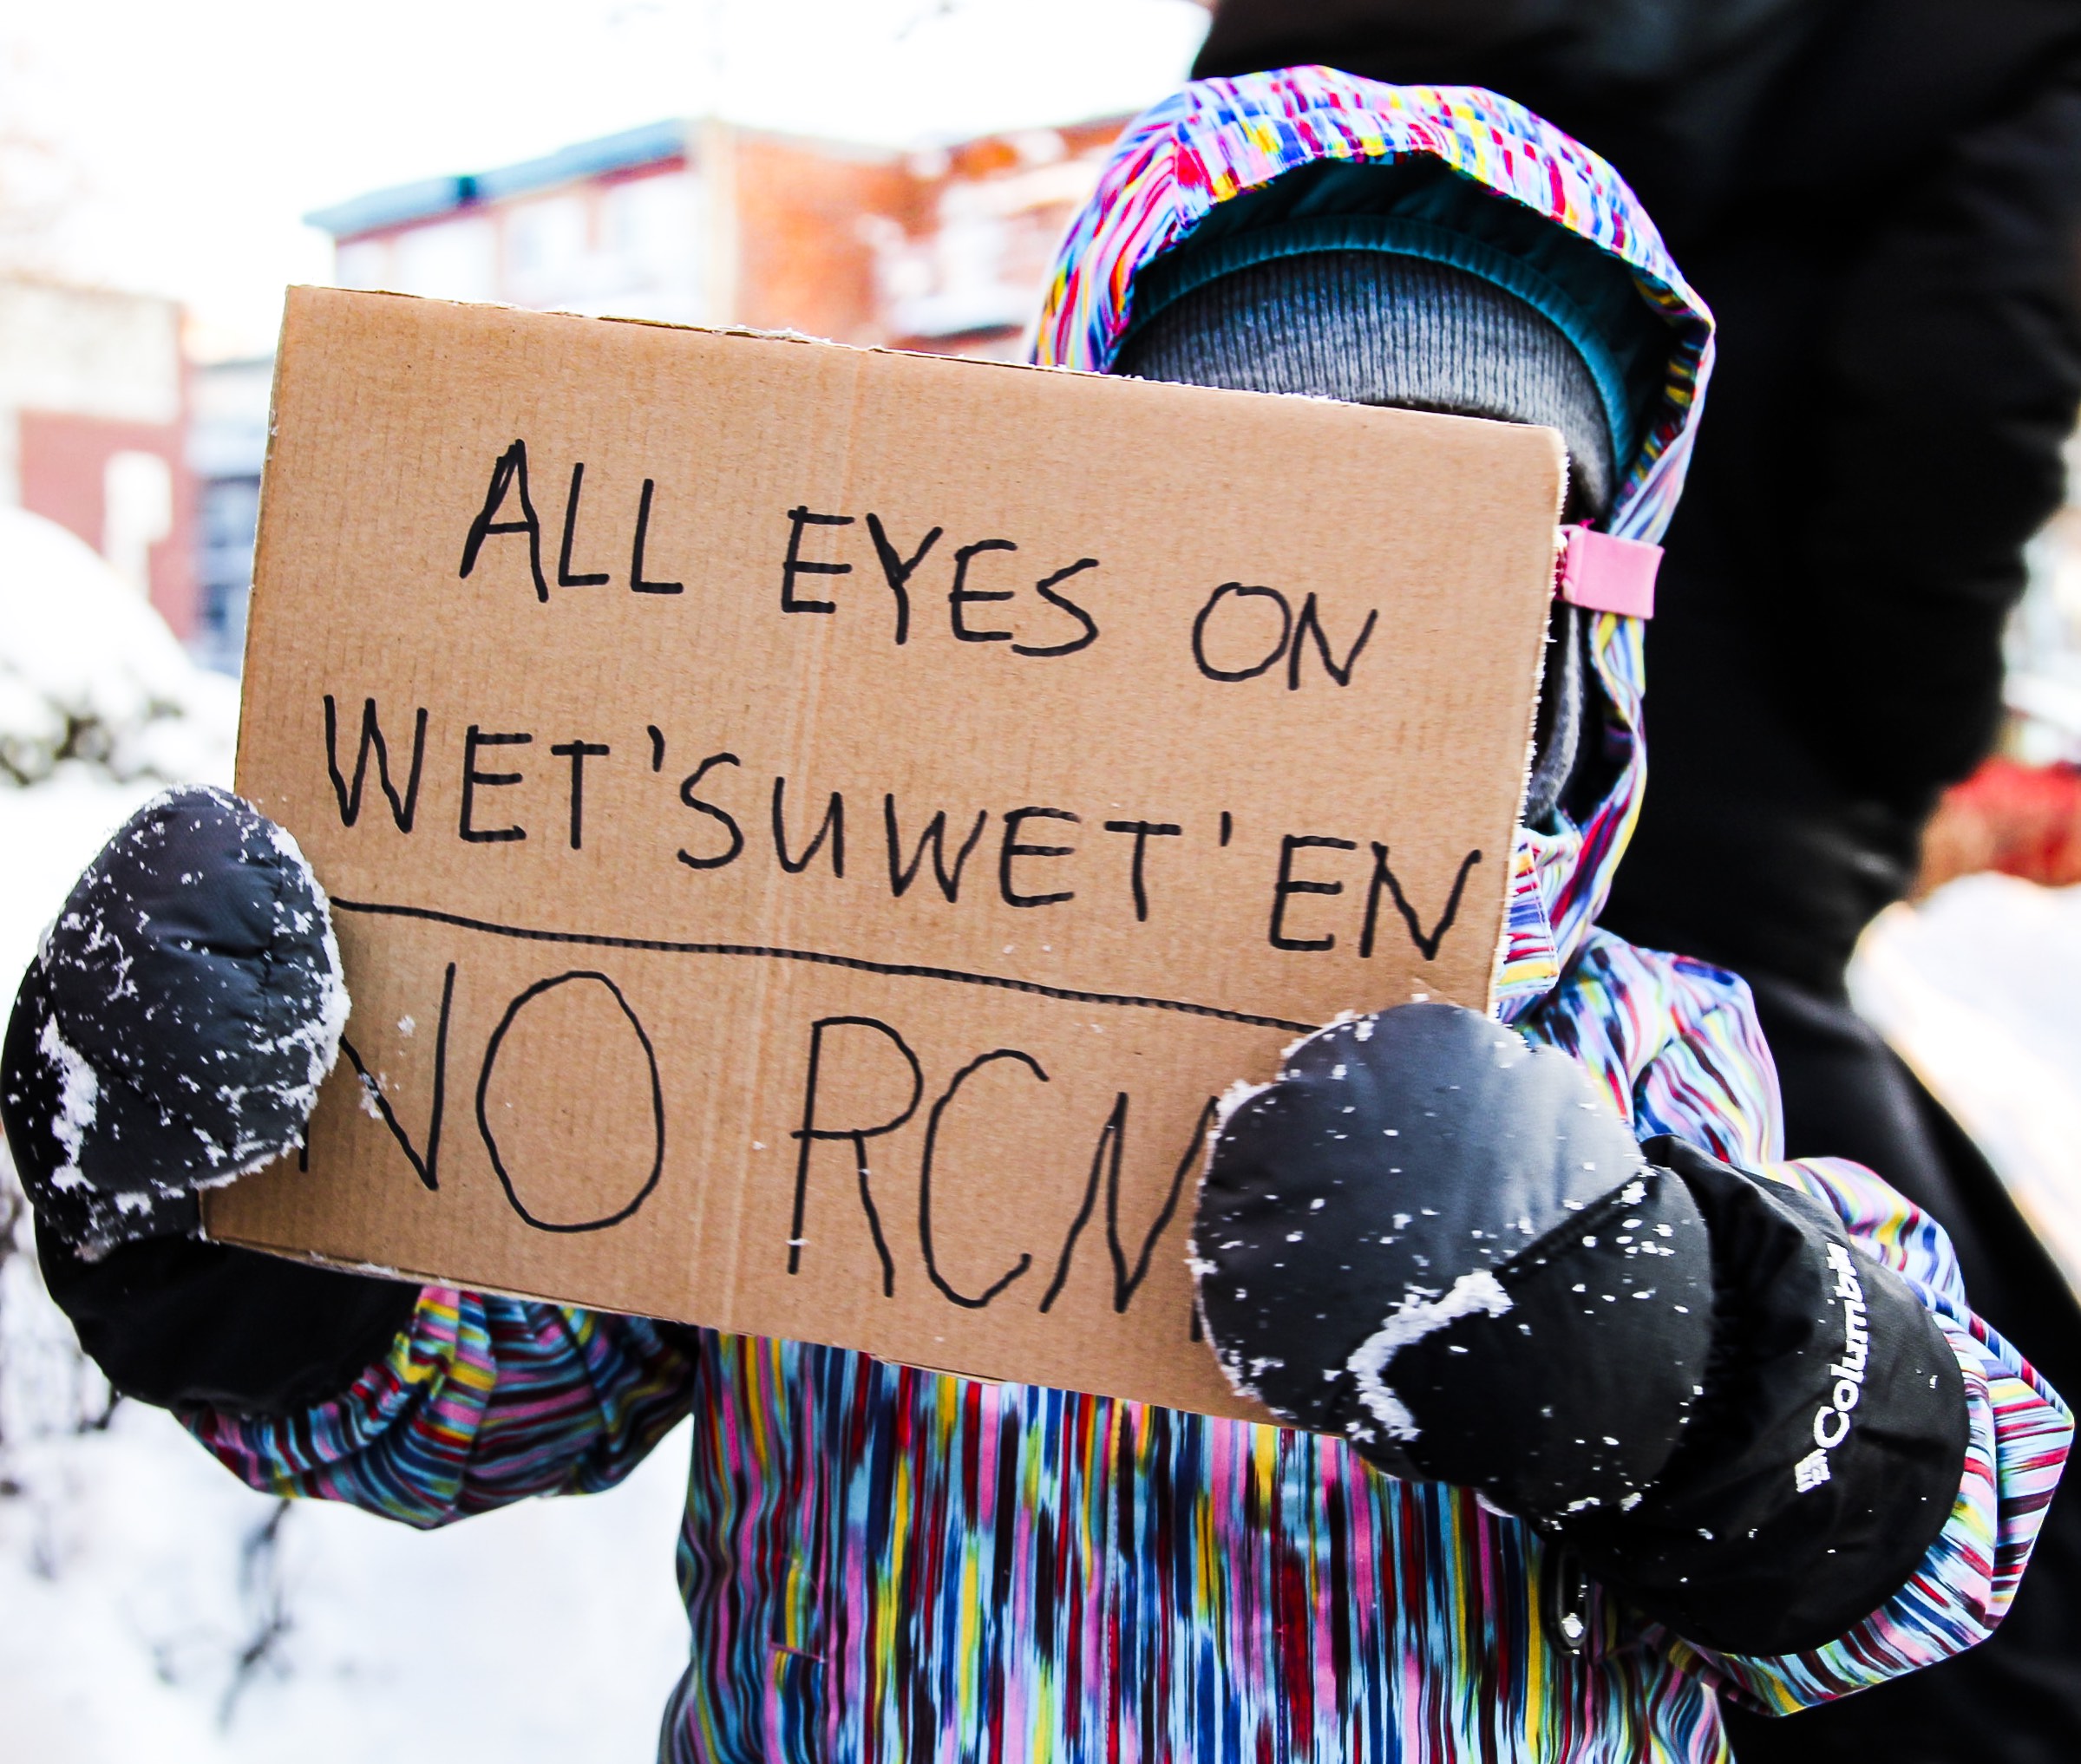 ALL EYES ON
WET'SUWET'EN
NO RCM
Columbia